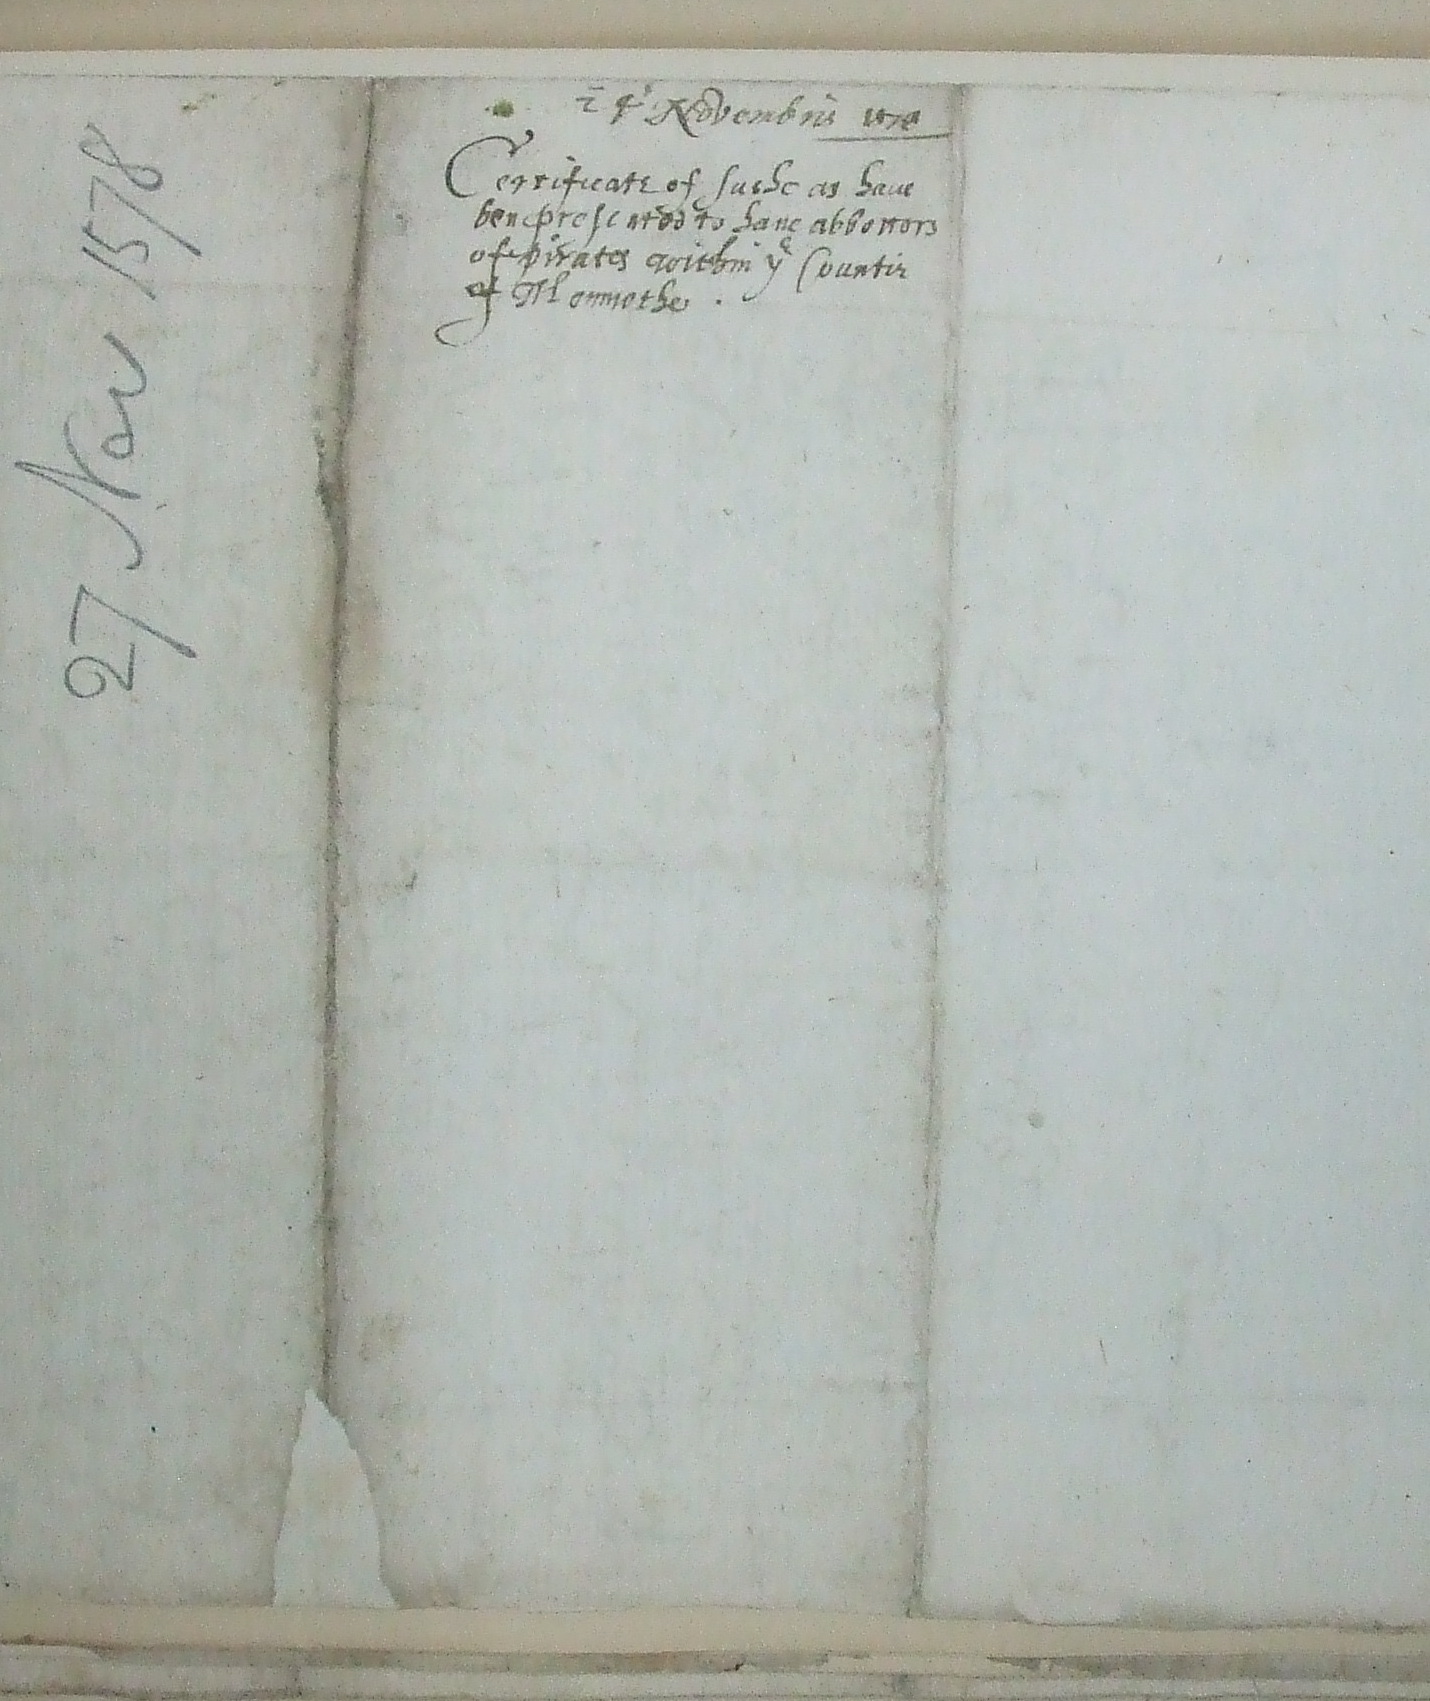 27 Nov 1578
Novembris 1578
Certificate of suche as have
bene presented to have abbettors
of pirates within yͤ Countie
of Monmothe .